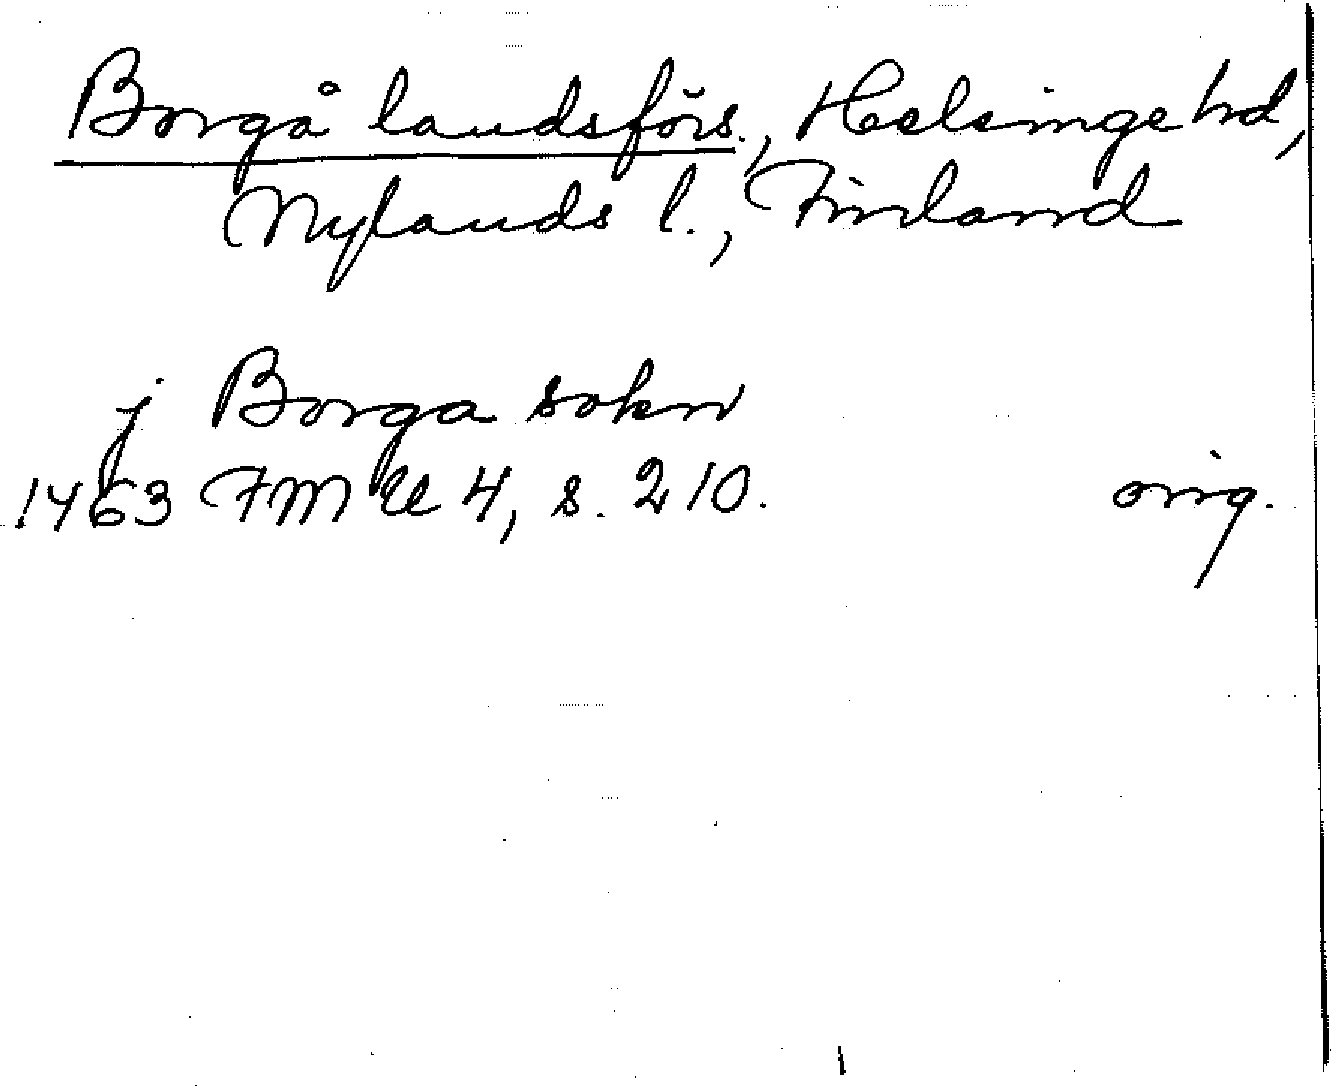 Borgå landsförs., Helsinge hd,
Nylands l., Finland
j Borga sokn
1463 FMU 4, s. 210. orig.